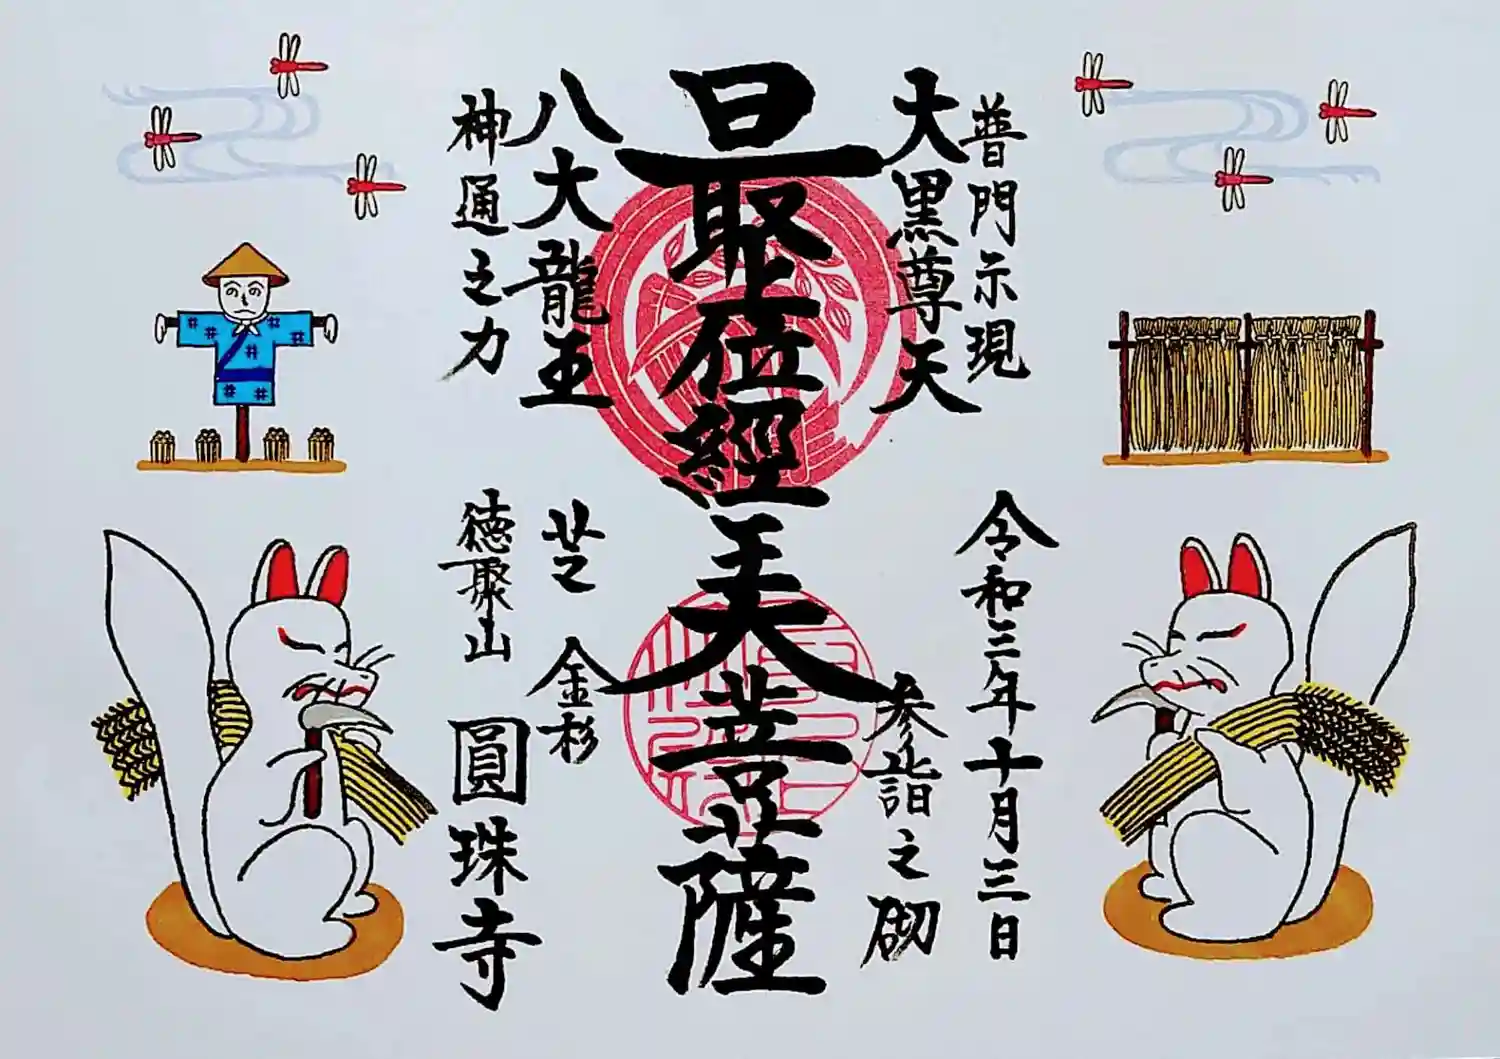 普門示現
令和三年十月三日
大黒尊天
参詣之砌
最上位經王大菩薩
八大龍王
芝 金杉
神通之力
徳聚山
圓珠寺